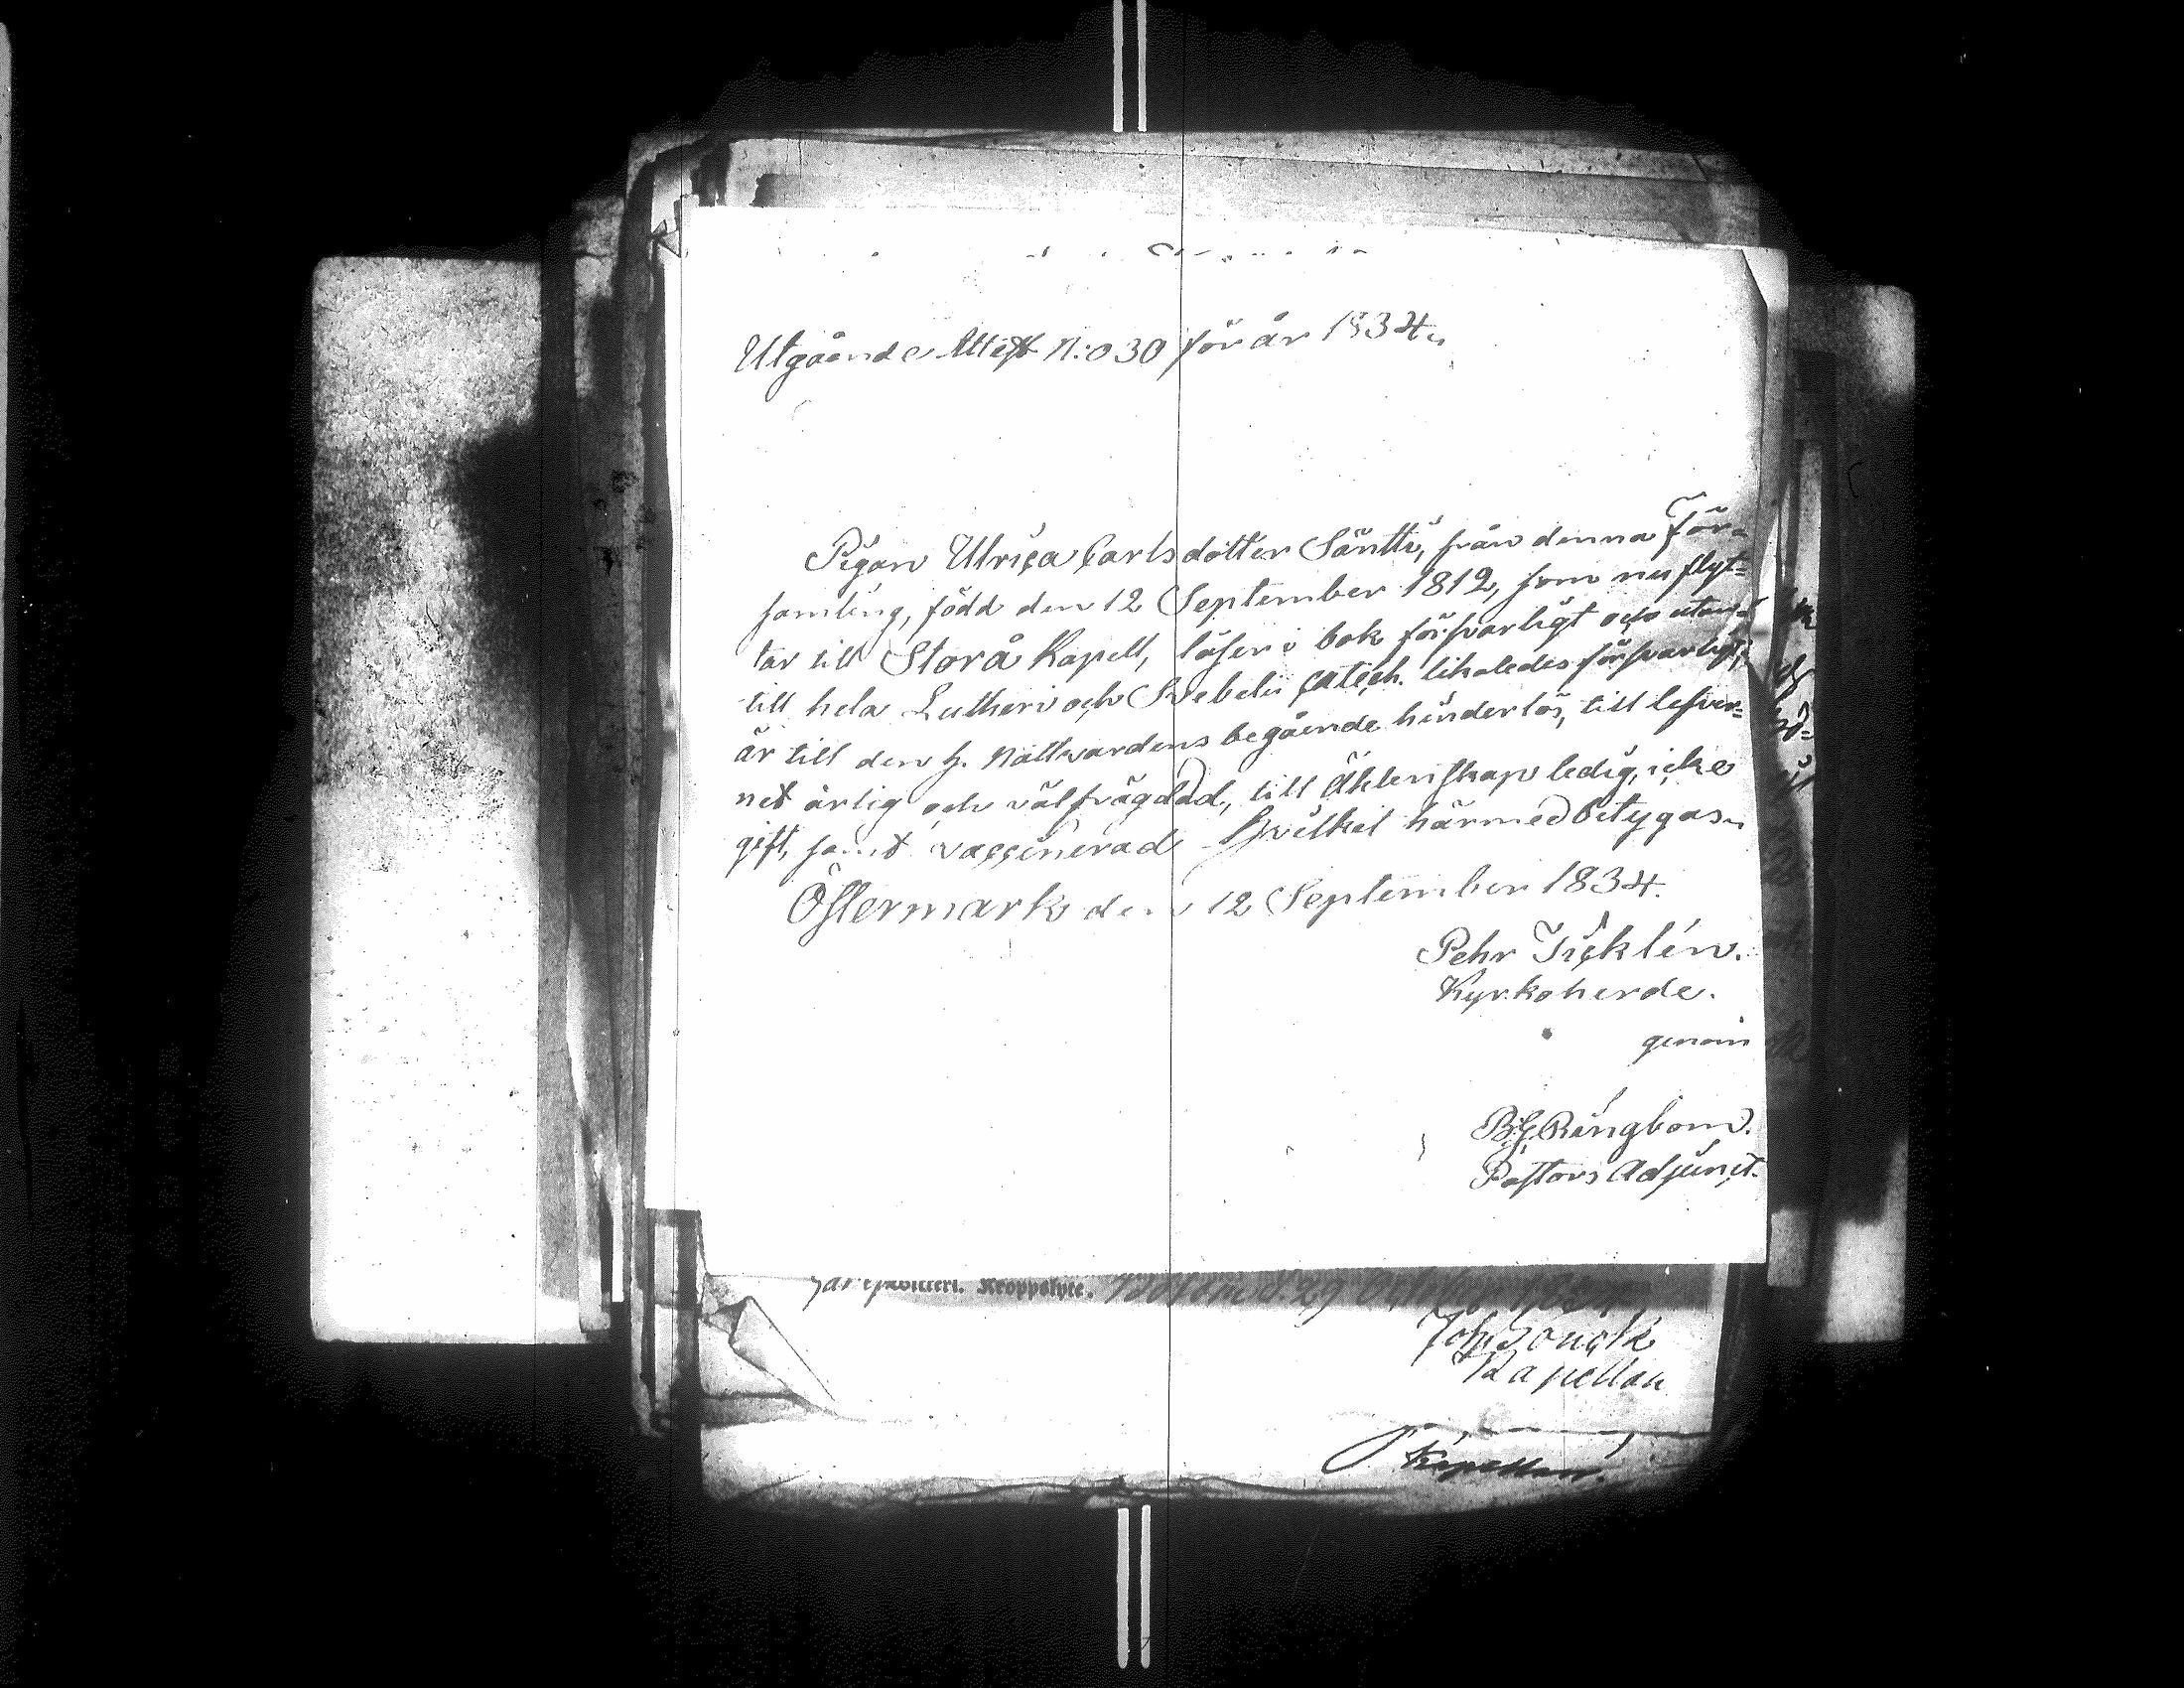 Utgående Attest N:o 30 för år 1834.
Pigan Ulrica Carlsdotter Säntti, från denna För-
samling, född den 12 September 1812, som nu flyt-
tar till Storå Kapell, läser i bok försvarligt och utan
till hela Lutheri och Svebelii Catech. likaledes försvarligt,
är till den h. Nattvardens begående hinderlös, till lefver-
net ärlig och välfrägdad, till Äktenskap ledig, icke
gift, samt vaccinerad. Hvilket härmed betygas.
Östermark den 12 September 1834.
Pehr Ticklén.
Kyrkoherde.
genom
B.G. Ringbom.
Pastors Adjunct.
Kroppslyte. 29 October
Joh.
Kapellan
Kapellan.